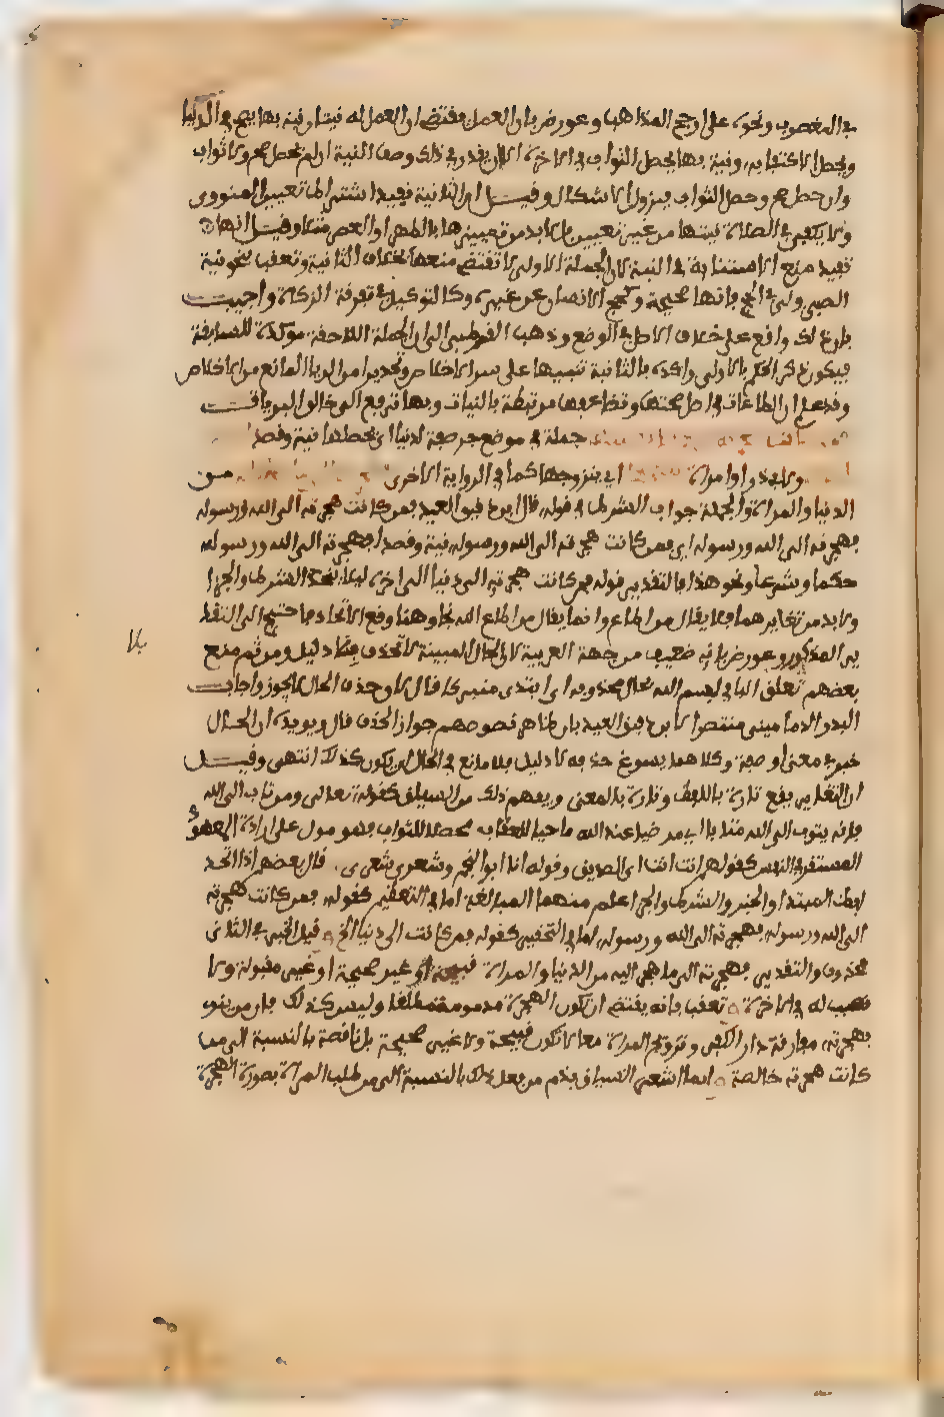 في المغصوب ونحوه على ارجح المذاهب وعورض بان العمل يقتضي ان العمل له نية ونية بها يصح في الدنيا
ويحصل الاكتفا به ونية بها يحصل الثواب في الاخرة الا ان يقدر في ذلك وصف النية ان لم يحصل صح ولا ثواب
وان حصل صح وحصل الثواب يزول الاشكال وقيل ان الثانية تفيد اشتراط تعيين المنوي
ولا يكفي في الصلاة نيتها من غير تعيين بل لا بد من تعيينها بالظهر او العصر مثلا وقيل انها
تفيد منع الاستنابة في النية لان الجملة الاولى لا تقتضي منعها بخلاف الثانية وتعقب بنحو نية
الصبي ولي في الحج فانها صحيحة وكحج الانسان عن غيره وكالتوكيل في تفرقة الزكاة واجيب
بان ذلك واقع على خلاف الاصل في الوضع وذهب القرطبي الى ان الجملة اللاحقة موكدة للسابقة
فيكون ذكر الحكم بالاولى واكده بالثانية تنبيها على سر الاخلاص وتحذيرا من الريا المانع من الاخلاص
وقد علم ان الطاعات في اصل صحتها وتضاعفها مرتبطة بالنيات وبها ترفع الى خالق البريات
جملة في موضع جر صفة لدنيا اي يحصلها نية وقصدا
او امراة اي يتزوجها كما في الرواية الاخرى من
الدنيا والمراة والجملة جواب الشرط في قوله قال ابن دقيق العيد فمن كانت هجرته الى الله ورسوله
فهجرته الى الله ورسوله اي فمن كانت هجرته الى الله ورسوله نية وقصدا فهجرته الى الله ورسوله
حكما وشرعا ونحو هذا في التقدير قوله فمن كانت هجرته الى دنيا الى اخره ليلا يتحد الشرط والجزا
ولا بد من تغايرهما فلا يقال من اطاع وانما يقال من اطاع الله نجا وهنا وقع الاتحاد فاحتيج الى التقد
ير المذكور وعورض بانه ضعيف من جهة العربية لان الحال المبينة لا تحذف بلا دليل ومن ثم منع
بلا
بعضهم تعلق البا في بسم الله بحال محذوفة اي ابتدي متبركا قال لان حذف الحال لا يجوز واجاب
البدر الدماميني منتصرا لابن دقيق العيد بان ظاهر نصوصهم جواز الحذف قال ويويده ان الحال
خبر في معنى او صفة وكلاهما يسوغ حذفه لا دليل بلا مانع في الحال ان يكون كذلك انتهى وقيل
ان التغاير يقع تارة باللفظ وتارة بالمعنى ويفهم ذلك من السياق كقوله تعالى ومن تاب الى الله
فانه يتوب الى الله متابا اي مرضيا عند الله ماحيا للعقاب محصلا للثواب فهو مول على ارادة المعهود
المستقر في النفس كقولهم انت انت اي الصديق وقوله انا ابو النجم وشعري شعري قال بعضهم اذا اتحد
لفظ المبتدا والخبر والشرط والجزا علم منهما المبالغة اما في التعظيم كقوله فمن كانت هجرته
الى الله ورسوله فهجرته الى الله ورسوله اما في التحقير كقوله فمن كانت الى دنيا الخ قيل الخبر في الثاني
محذوف والتقدير فهجرته الى ما هاجر اليه من الدنيا والمراة قبيحة او غير صحيحة او غير مقبولة ولا
نصيب له في الاخرة تعقب بانه يقتضي ان تكون الهجرة مذمومة مطلقا وليس كذلك فان من ينو
بهجرته مفارقة دار الكفر وتزوج المراة معا لا تكون قبيحة ولا غير صحيحة بل ناقصة بالنسبة الى من
كانت هجرته خالصة انما اشعر السياق بذم من فعل ذلك بالنسبة الى من طلب المراة بصورة الهجرة